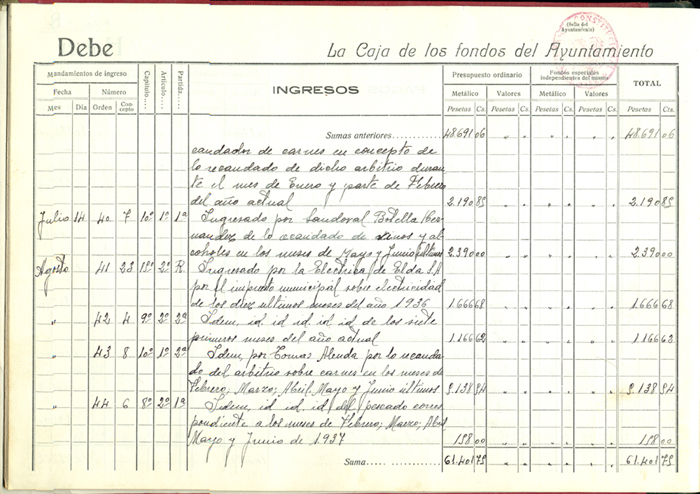 (Sello del Ayuntamiento)
Debe La Caja de los fondos del Ayuntamiento
Mandamientos de ingreso Capítulo.... Artículo.... Partida.... INGRESOS Presupuesto ordinario Fondos especiales independientes del mismo TOTAL
Fecha Número Metálico Valores Metálico Valores
Mes Día Orden Concepto Pesetas Cs. Pesetas Cs. Pesetas Cs. Pesetas Cs. Pesetas Cs.
Sumas anteriores 48691 06 " " " " " " 48.691 06
caudador de carnes en concepto de
lo recaudado de dicho arbitrio duran
te el mes de Enero y parte de Febrero
del año actual 2.190 85 " " " " " " 2.190 85
Julio 14 40 7 10º 1º 1ª Ingresado por Sandoval Botella Her
nandez de lo recaudado de vinos y al
coholes en los meses de Mayo y Junio últimos 2.390 00 " " " " " " 2.390 00
Agosto 41 23 2º R. Ingresado por la Electrica de Elda S.A
por el impuesto municipal sobre electricidad
de los diez ultimos meses del año 1936 1.666 68 " " " " " " 1.666 68
" 42 4 9º 2º 2ª Idem, id id id id id de los siete
primeros meses del año actual 1.166 62 " " " " " " 1.166 62
" 43 8 10º 1º 2ª Idem, por Tomas Alenda por lo recauda
do del arbitrio sobre carnes en los meses de
Febrero; Marzo; Abril, Mayo y Junio últimos 5.138 54 " " " " " " 5.138 54
" 44 6 8º 2º 1ª Idem, id id. id del pescado corres
pondiente a los meses de Febrero; Marzo; Abril
Mayo y Junio de 1937 158 00 " " " " " " 158 00
Suma 61.401 75 " " " " " " 61.401 75